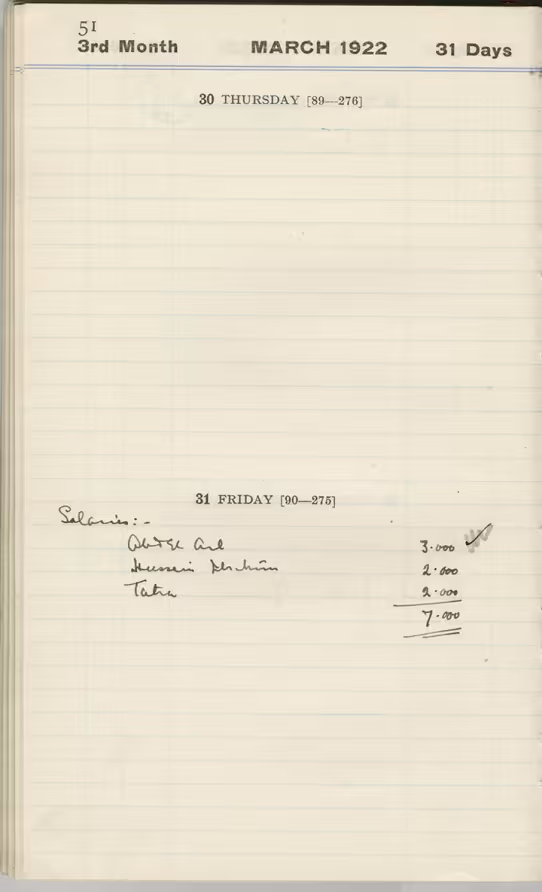 51
3rd Month MARCH 1922 31 Days
30 THURSDAY [89—276]
31 FRIDAY [90—275]
Salaries:-
Abd El Aal 3.000
Hussein Ibrahim 2.000
Taha 2.000
7.000